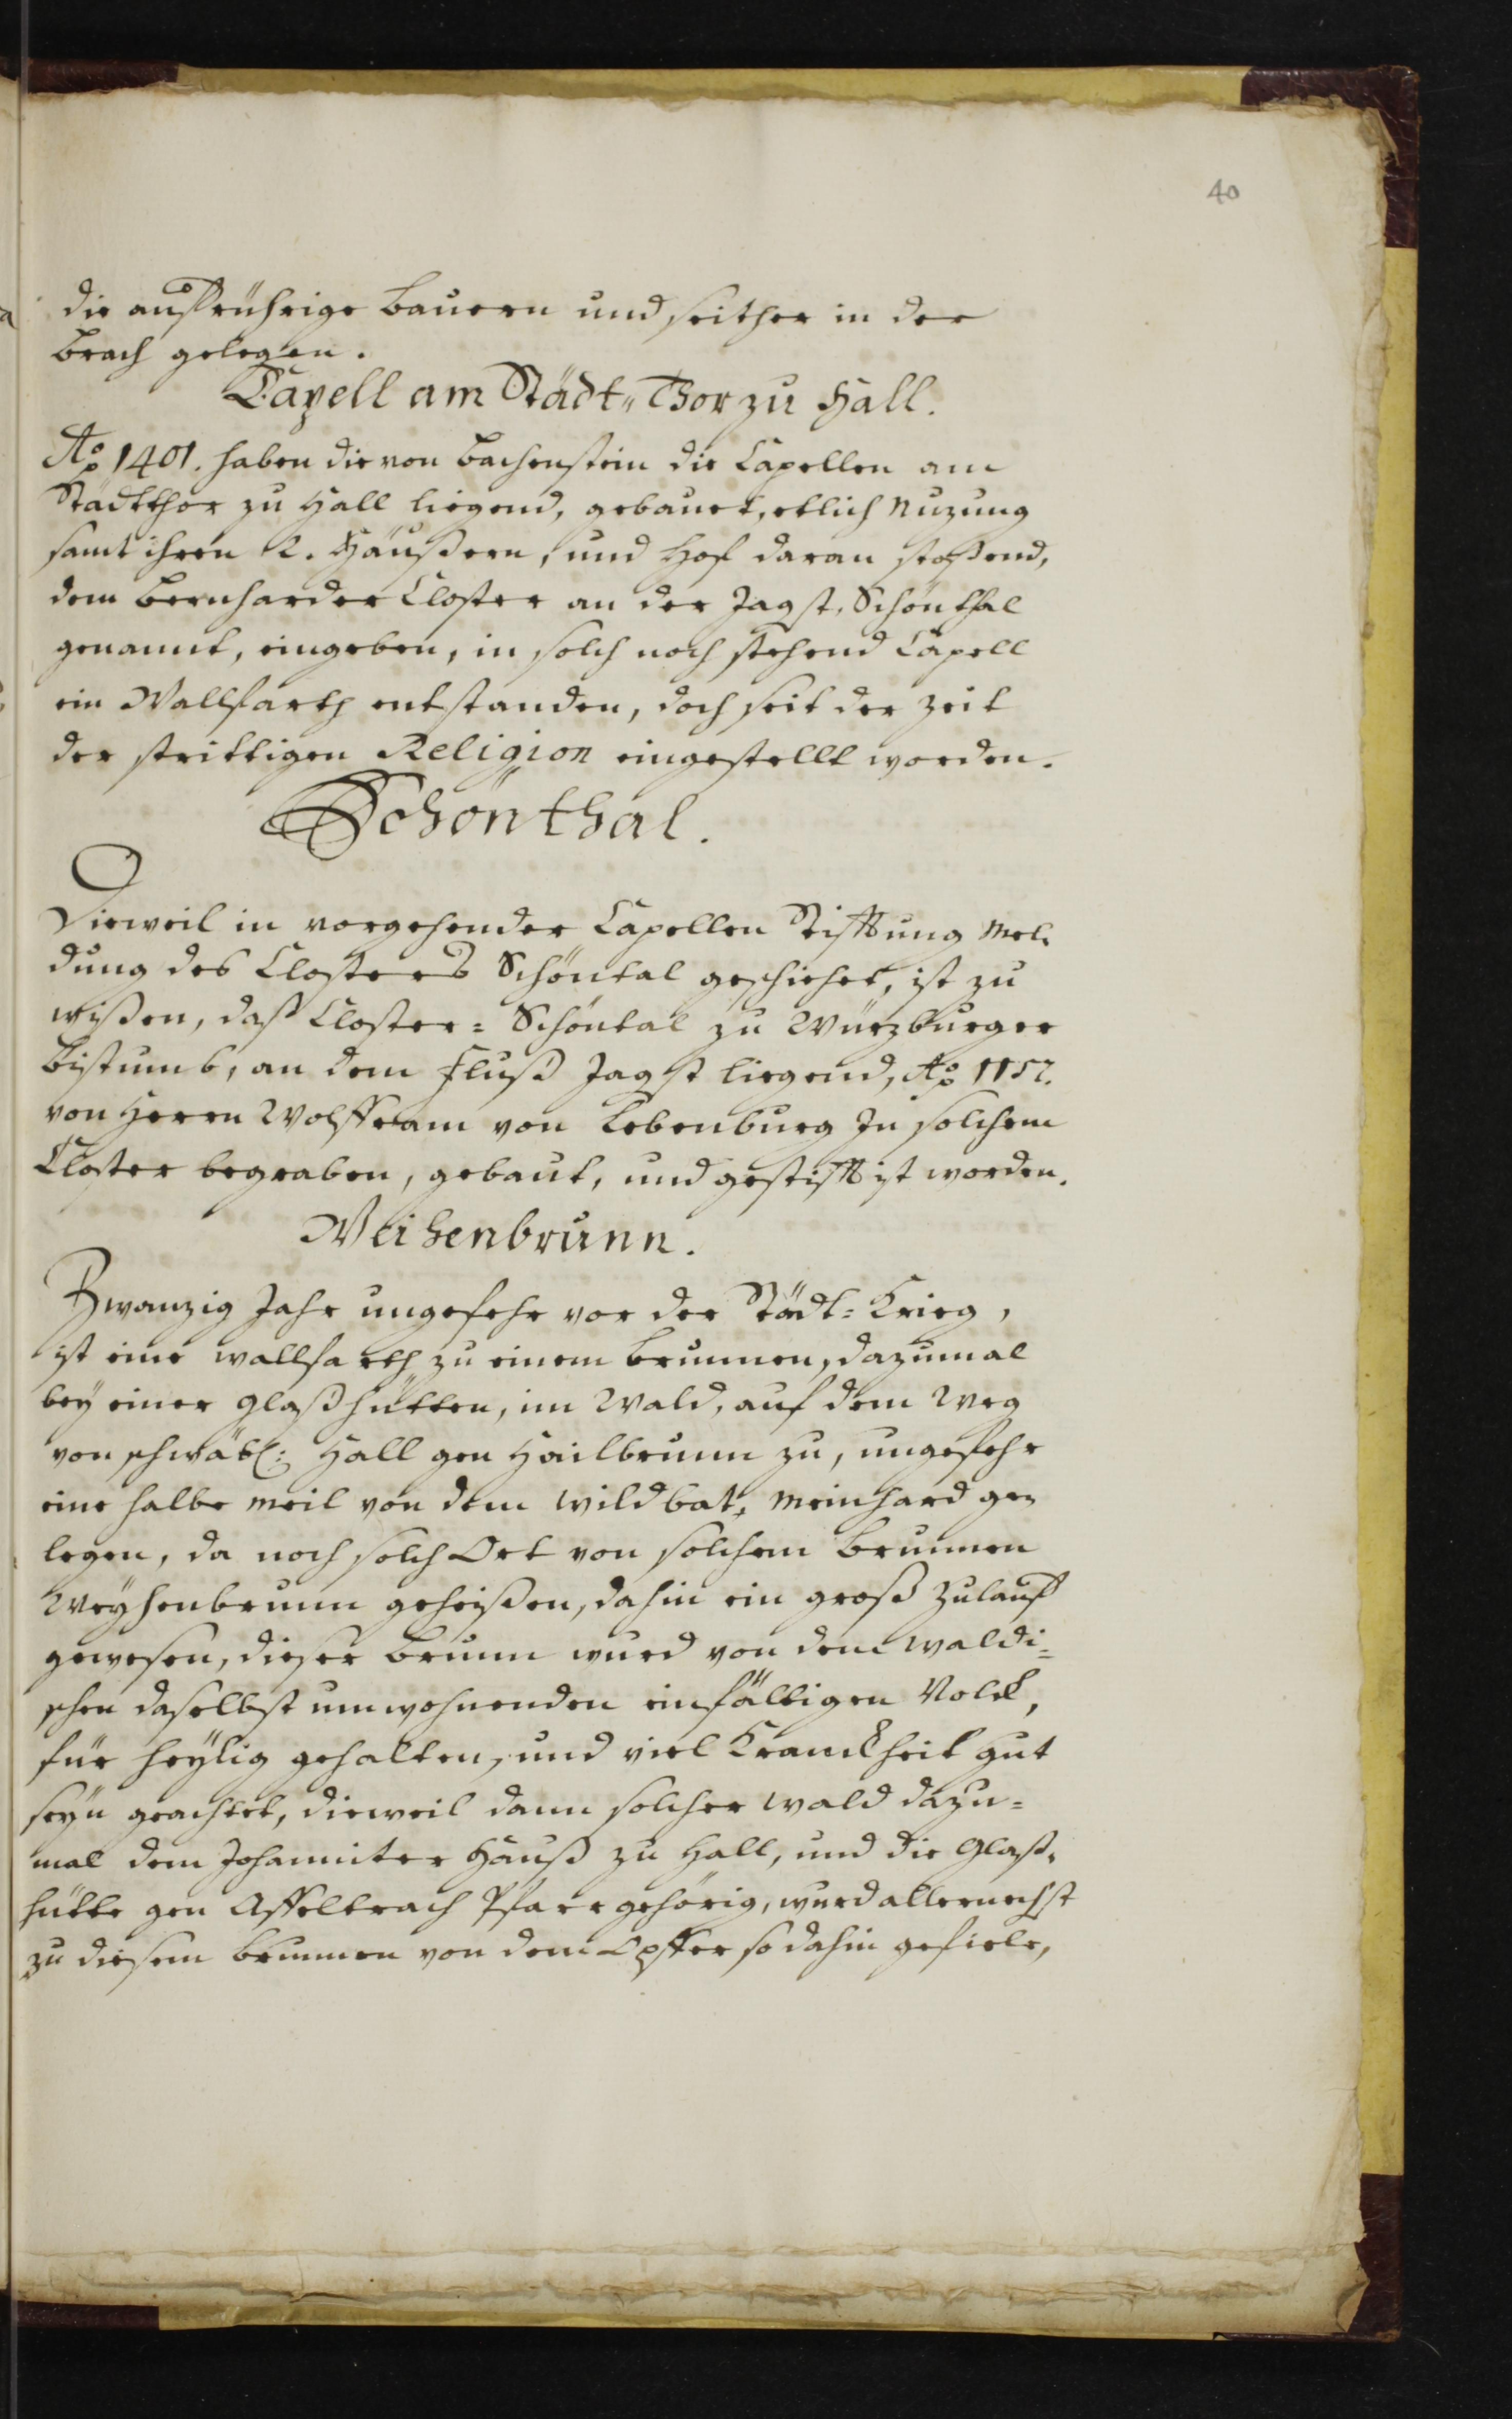 40
die auffrührige Bauern und seither in der
Brach gelegen.
Capell am Städt„Thor zu Hall.
Aō 1401. haben die von Bachenstein die Capellen am
Städtthor zu Hall liegend, gebauet, etlich Nuzung
samt ihren 2. Häußern, und Hof daran stoßend,
dem Bernharder Closter an der Jagst, Schönthal
genannt, eingeben, in solch noch stehend Capell
ein Wallfarth entstanden, doch seit der Zeit
der strittigen Religion eingestellt worden.
Schönthal.
Dieweil in vorgehender Capellen Stifftung Mel-
dung des Closters Schöntal geschiehet, ist zu
wißen, daß Closter = Schöntal zu Würzburger
Bistumb, an dem Fluß Jagst liegend, Aō 1157.
von Herrn Wolffram von Bebenburg Jn solchem
Closter begraben, gebaut, und gestifft ist worden.
Weihenbrunn.
Zwanzig Jahr ungefehr vor der Städt = Krieg,
ist eine wallfarth zu einem Brunnen, dazumal
bey einer Glaßhütten, im Wald, auf dem Weg
von schwäb: Hall gen Hailbrunn zu, ungefehr
eine halbe meil von dem Wildbat, Meinhard ge=
legen, da noch solch Ort von solchem Brunnen
Weyhenbrunn geheißen, dahin ein groß Zulauff
gewesen, dieser Brunn wurd von dem waldi=
schen daselbst umwohnenden einfältigen Volck,
für heylig gehalten, und viel Kranckheit gut
seyn geachtet, dieweil dann solcher Wald dazu=
mal dem Johanniter Hauß zu Hall, und die Glaß-
hütte gen Affeltrach Pfarr gehörig, wurd allernechst
zu diesem Brunnen von dem Opffer so dahin gefiele,